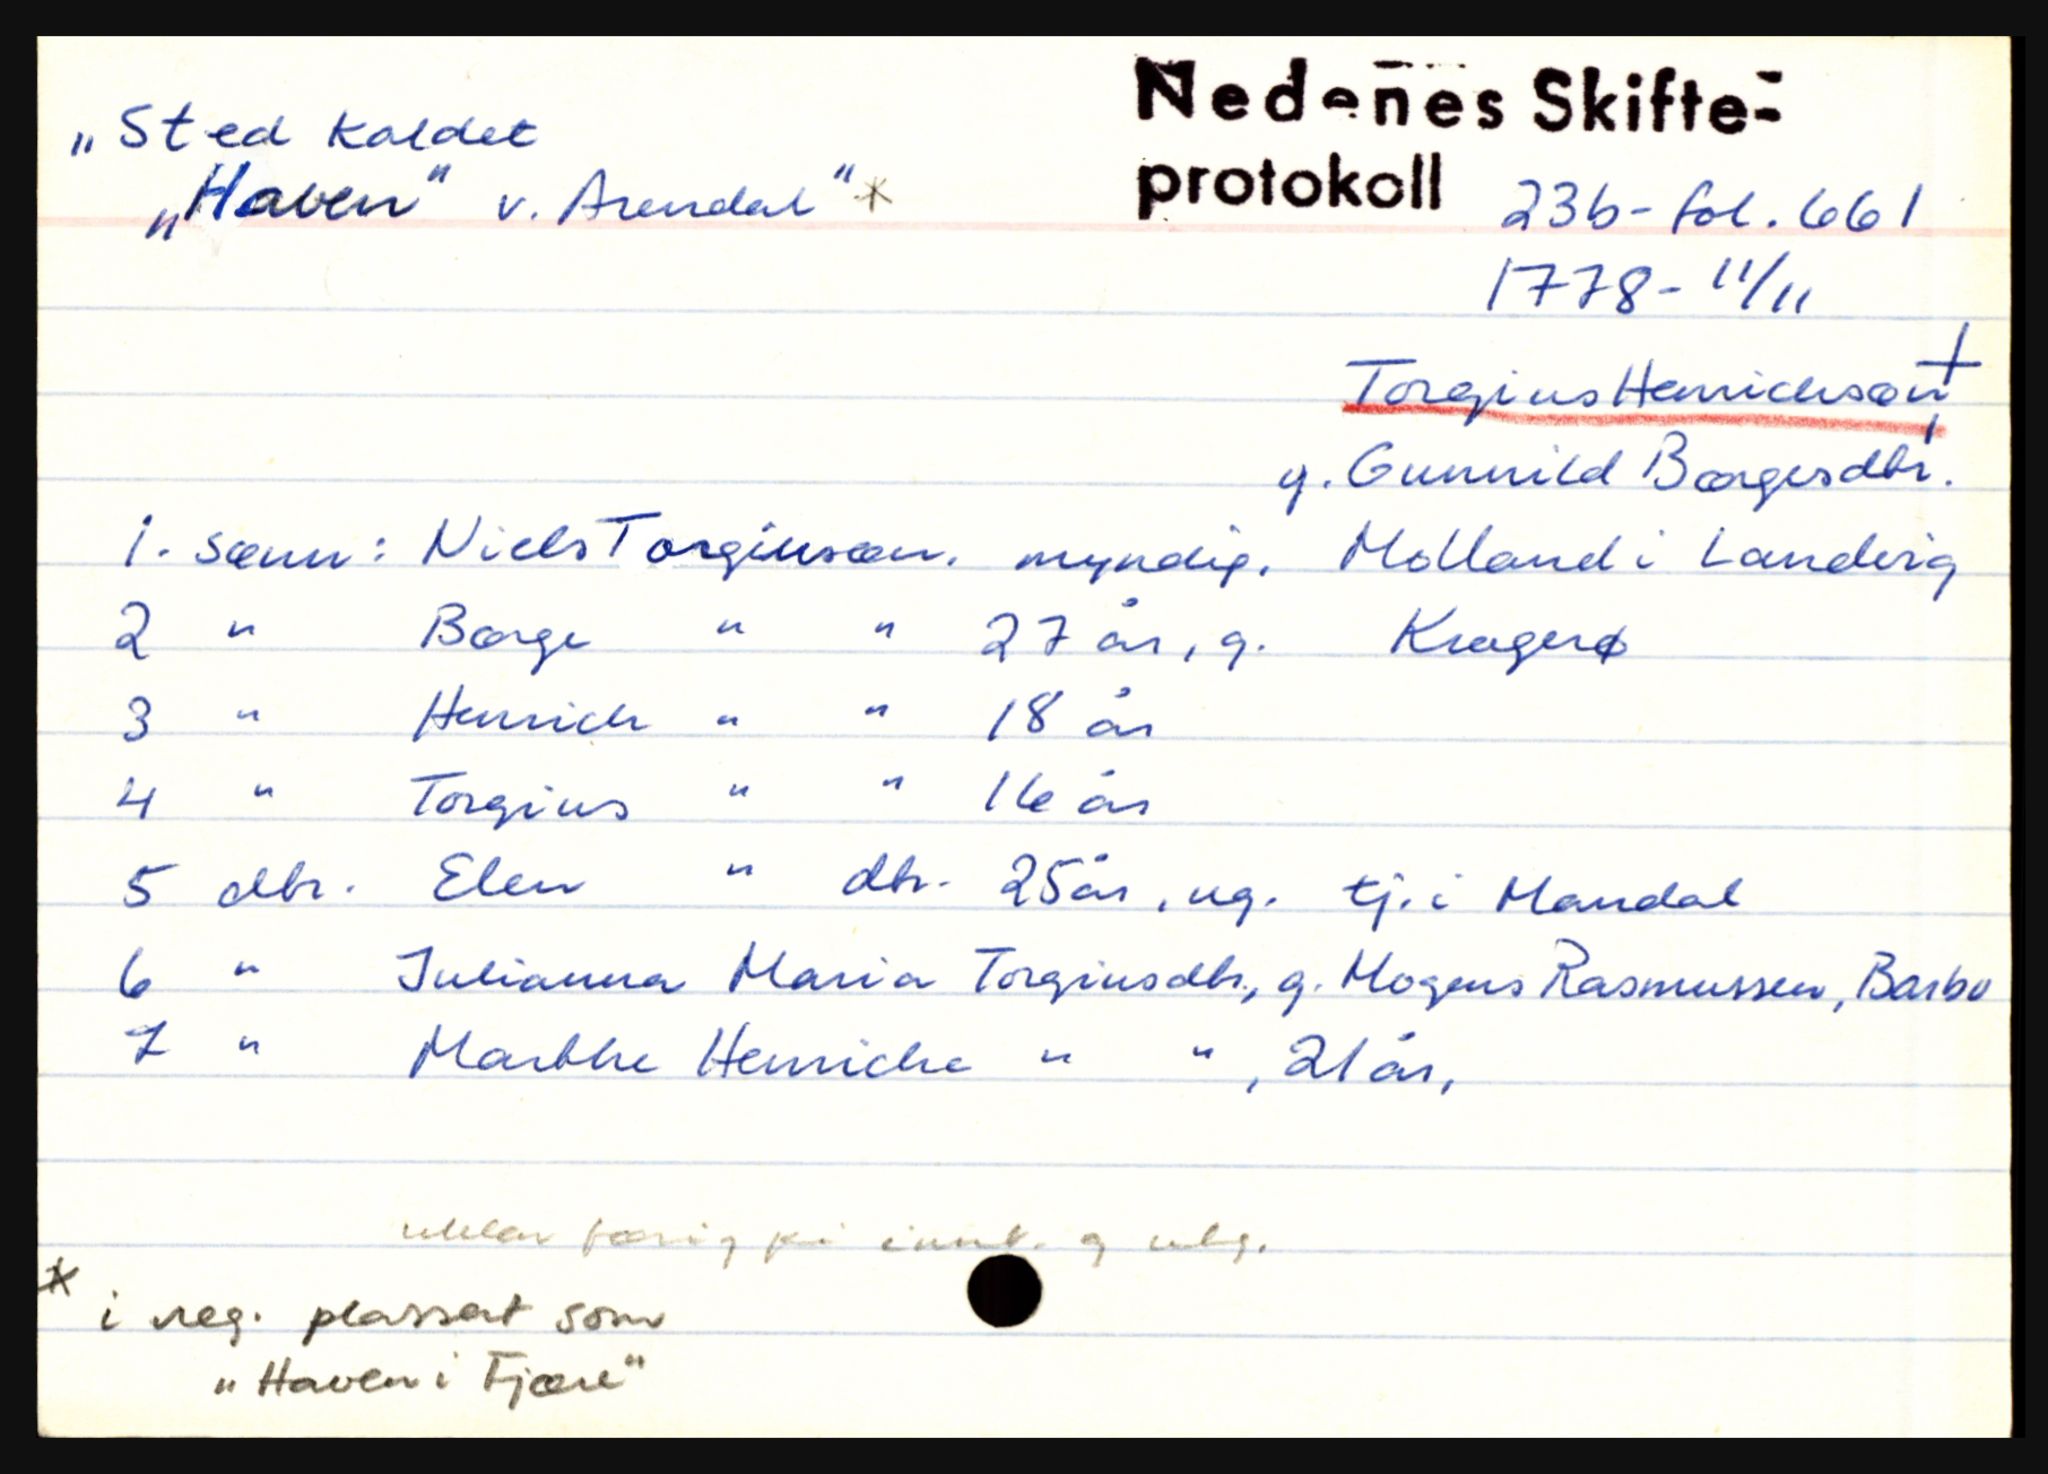 Nedenes Skifte-
protokoll
„Sted kaldet
„Haven" v. Arendal"*
23b - fol. 661
1778 - 11/11
Torgius Henrichsøn +
g. Gunnild Børgesdtr.
1. sønn: Niels Torgiusøn. myndig. Molland i Landvig
2 " Børge " " 27 år, g. Kragerø
3 " Henrich " " 18 år
4 " Torgius " " 16 år
5 dtr. Elen " dtr. 25 år, ug. tj. i Mandal
6 " Julianna Maria Torgiusdtr., g. Mogens Rasmussen, Barbo
7 " Marthe Henriche " ", 21 år,
på innt. g utlg.
* i reg. plassert som
„Haven i Fjære"